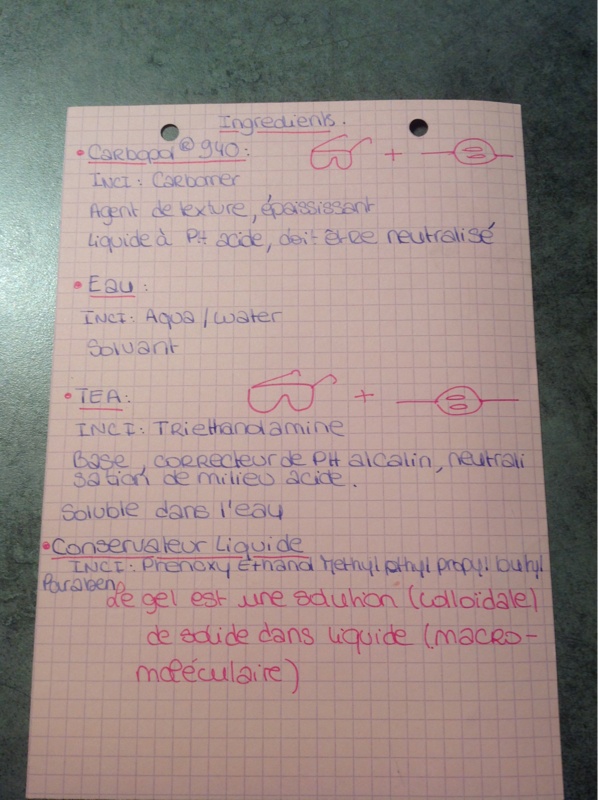 Ingredients.
• Carbopol® 940: +
INCI: Carbomer
Agent de texture, épaississant
Liquide à PH acide, doit être neutralisé
• Eau:
INCI: Aqua/water
Solvant
• TEA: +
INCI: Triethanolamine
Base, correcteur de PH alcalin, neutrali
sation de milieu acide.
Soluble dans l'eau
• Conservateur Liquide
INCI: Phenoxy Ethanol Methyl ethyl propyl butyl
Paraben
Le gel est une solution (colloïdale)
de solide dans liquide (macro-
moléculaire)